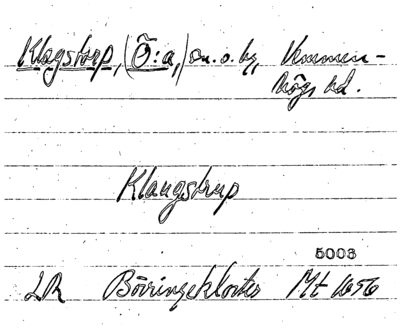 Klagstorp, (Ö:a,) sn. o. by, Vemmen-
högs hd.
Klaugstrup
5003
LR Börringekloster Mt 1656